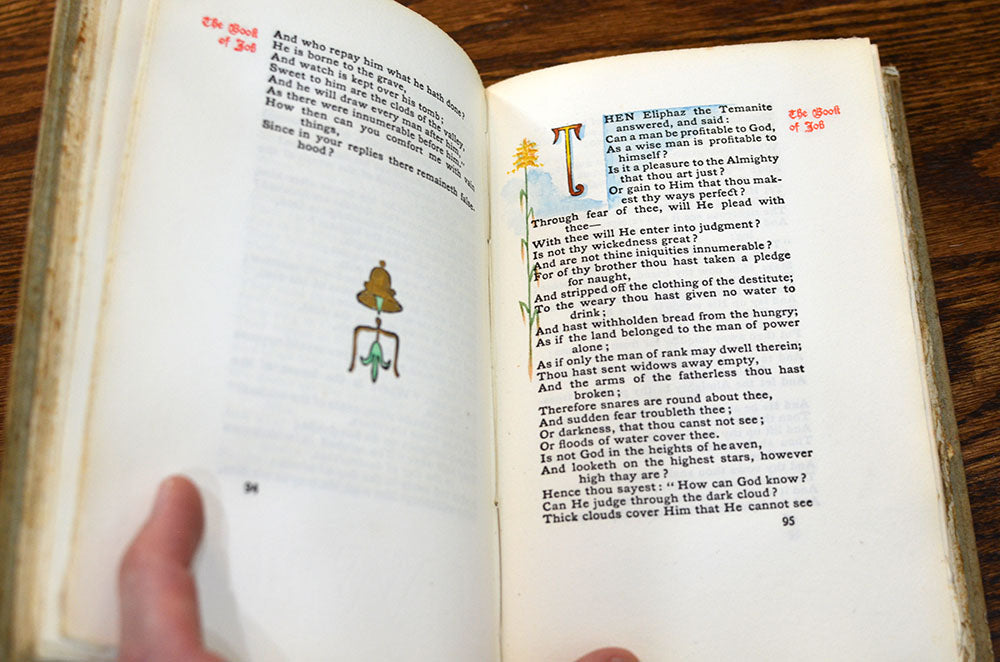 The Book
of Job
And who repay him what he hath done?
He is borne to the grave,
And watch is kept over his tomb;
Sweet to him are the clods of the valley,
And he will draw every man after him,
As there were innumerable before him."
How then can you comfort me with vain
things,
Since in your replies there remaineth false-
hood?
94
THEN Eliphaz the Temanite
answered, and said:
Can a man be profitable to God,
As a wise man is profitable to
himself?
Is it a pleasure to the Almighty
that thou art just?
Or gain to Him that thou mak-
est thy ways perfect?
Through fear of thee, will He plead with
thee—
With thee will He enter into judgment?
Is not thy wickedness great?
And are not thine iniquities innumerable?
For of thy brother thou hast taken a pledge
for naught,
And stripped off the clothing of the destitute;
To the weary thou hast given no water to
drink;
And hast withholden bread from the hungry;
As if the land belonged to the man of power
alone;
As if only the man of rank may dwell therein;
Thou hast sent widows away empty,
And the arms of the fatherless thou hast
broken;
Therefore snares are round about thee,
And sudden fear troubleth thee;
Or darkness, that thou canst not see;
Or floods of water cover thee.
Is not God in the heights of heaven,
And looketh on the highest stars, however
high they are?
Hence thou sayest: "How can God know?
Can He judge through the dark cloud?
Thick clouds cover Him that He cannot see
95
The Book
of Job